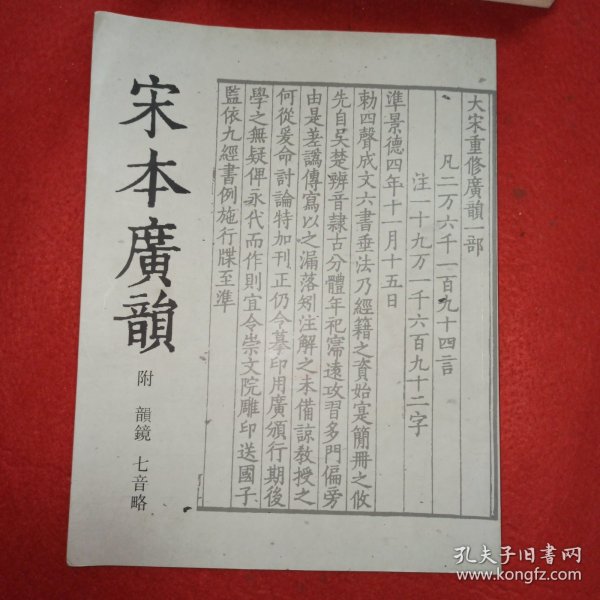 大宋重修廣韻一部
凡二万六千一百九十四言
注一十九万一千六百九十二字
準景德四年十一月十五日
勑四聲成文六書垂法乃經籍之資始寔簡冊之攸
先自吴楚辨音隸古分體年祀寖遠攻習多門偏旁
由是差譌傳寫以之漏落矧注解之未備諒教授之
何從爰命討論特加刊正仍令摹印用廣頒行期後
學之無疑俾永代而作則宜令崇文院雕印送國子
監依九經書例施行牒至準
宋本廣韻
附 韻鏡 七音略
孔夫子旧书网
www.kongfz.com